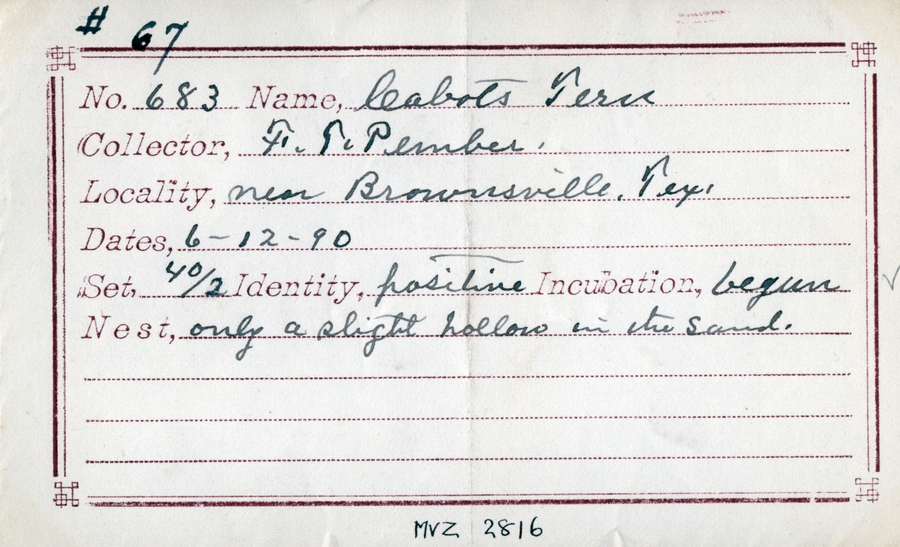 # 67
No. 683 Name, Cabots Tern
Collector, F. T. Pember.
Locality, near Brownsville, Tex.
Dates, 6-12-90
Set, 40/2 Identity, positive Incubation, begun
Nest, only a slight hollow in the sand.
MVZ 2816